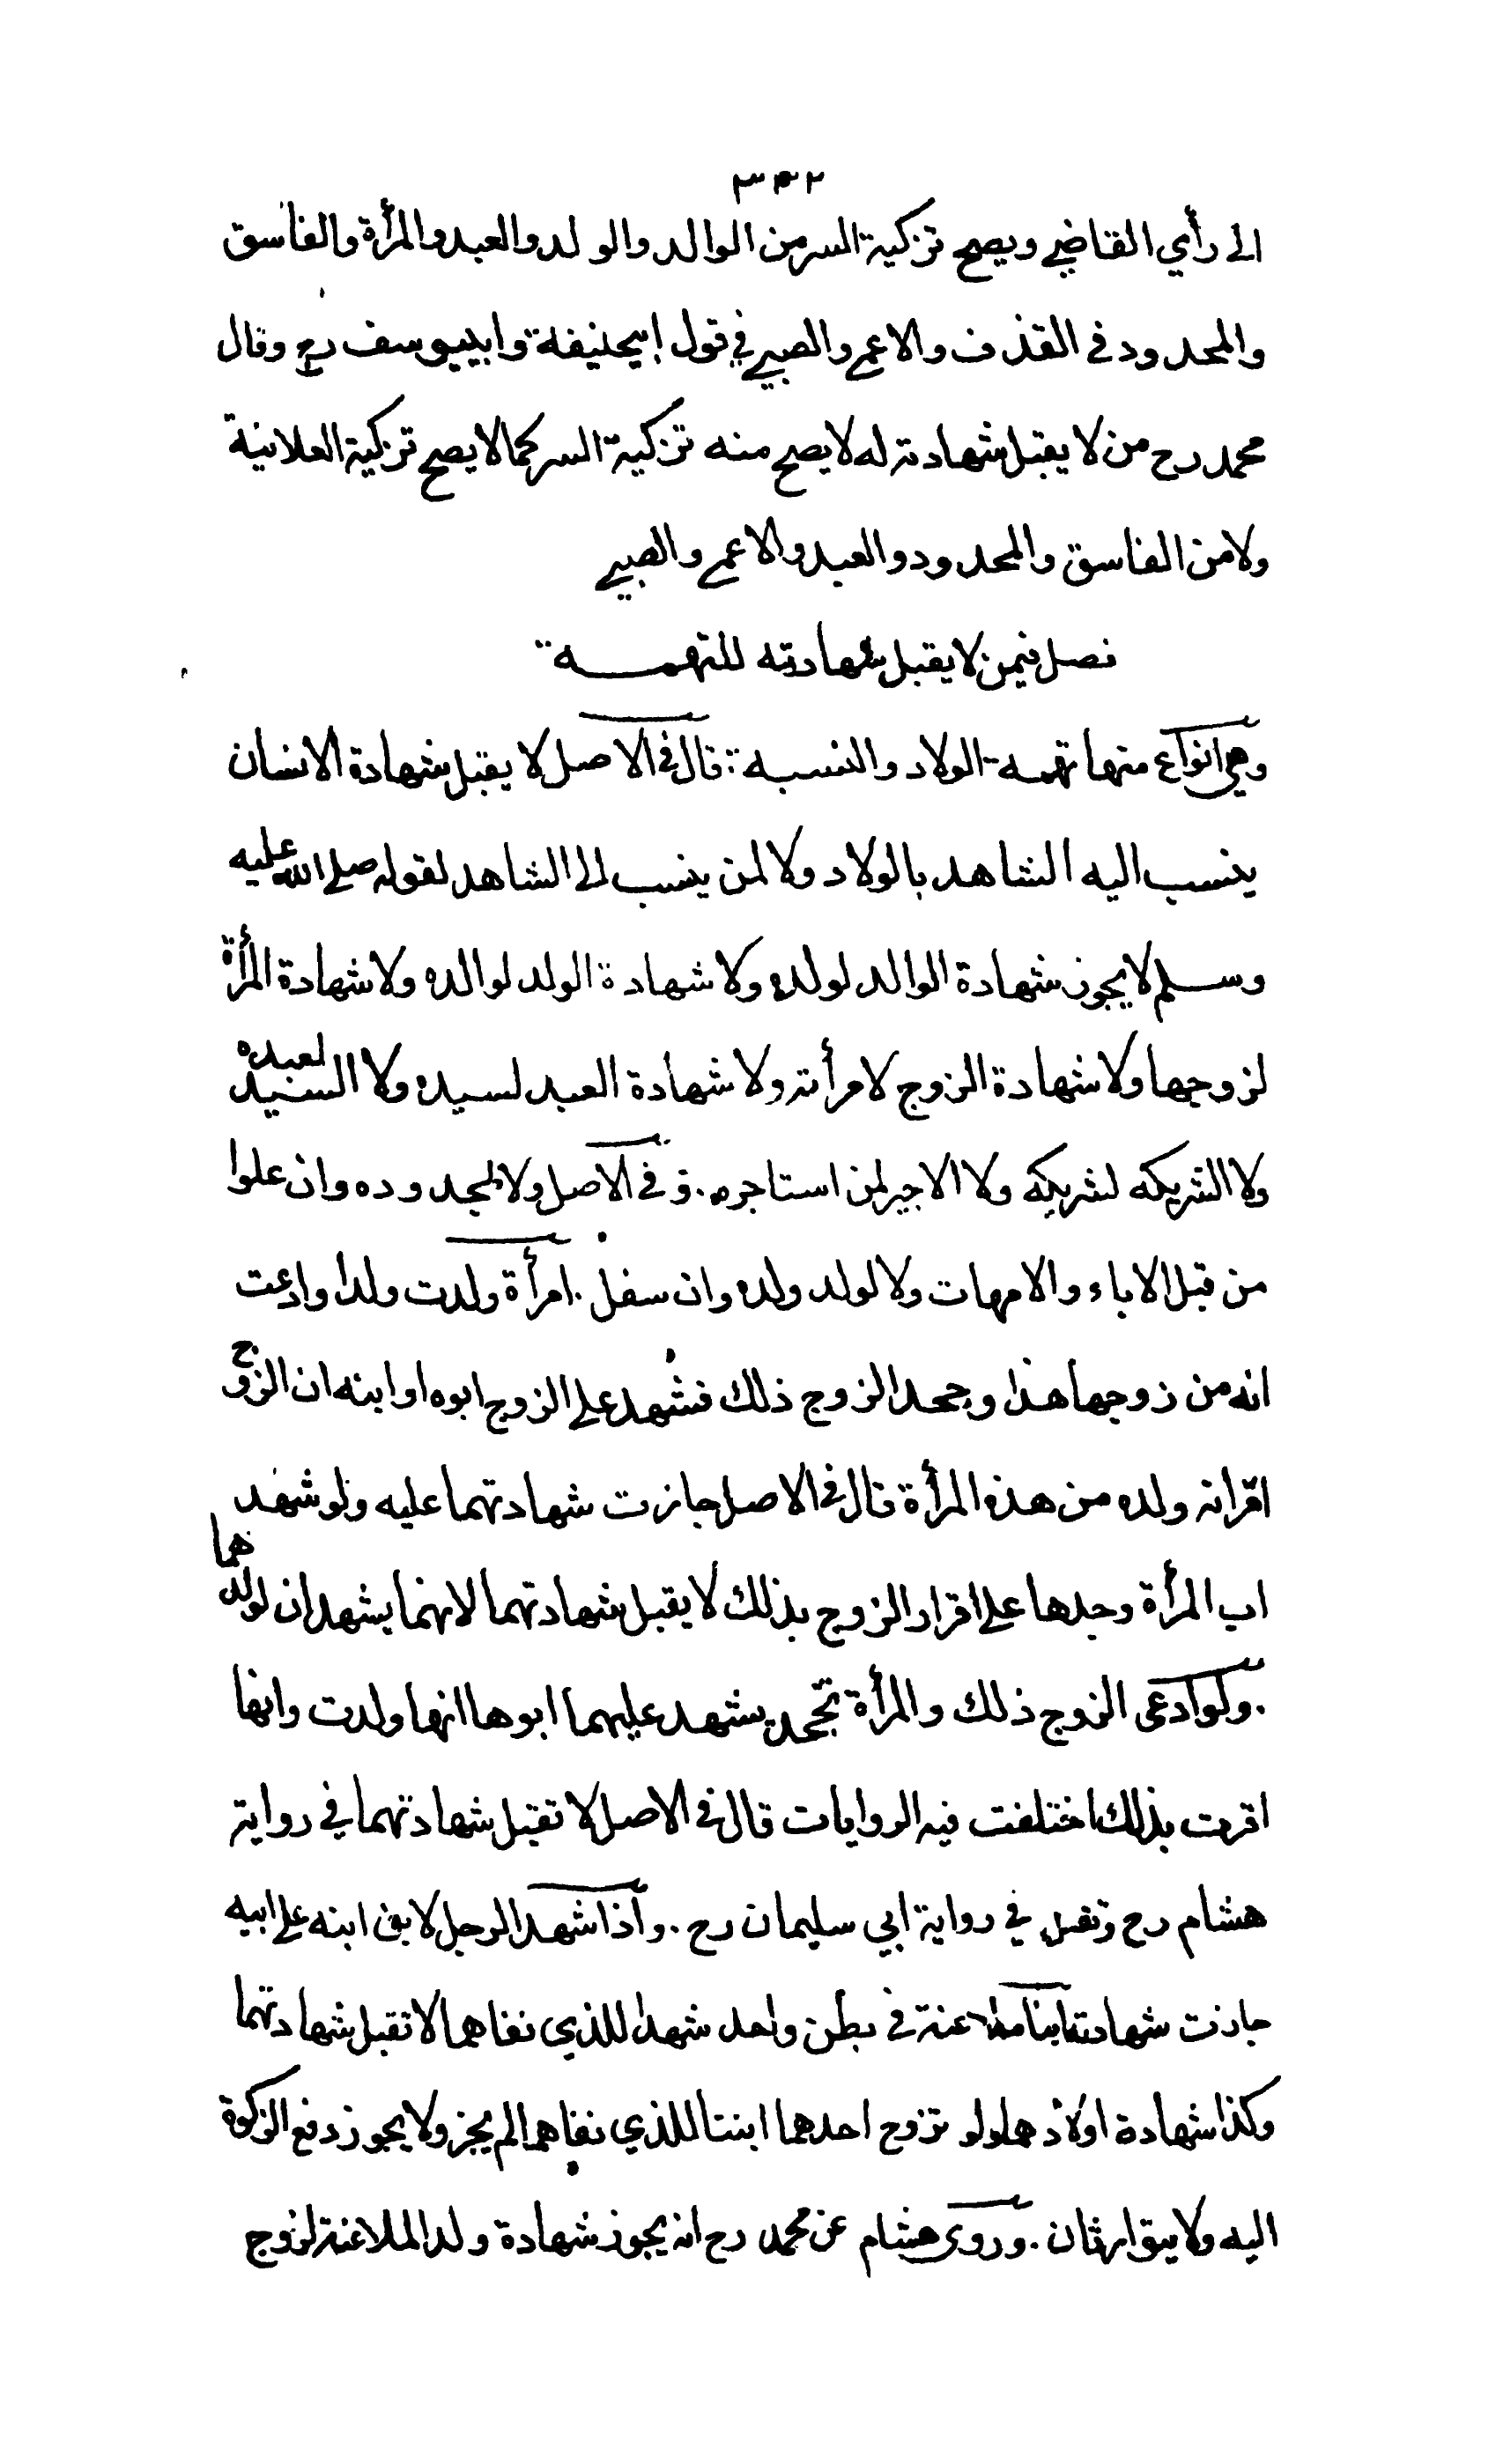 ٣٣٢
الى رأي القاضي ويصح تزكية السر من الوالد والولد والعبد والمرأة والفاسق
والمحدود في القذف والاعمى والصبي في قول ابيحنيفة وابييوسف رح وقال
محمد رح من لا يقبل شهادته له لا يصح منه تزكية السر كما لا يصح تزكية العلانية
ولا من الفاسق والمحدود والعبد والاعمى والصبي
فصل فيمن لا يقبل شهادته للتهمة
وهي انواع منها تهمة الولاد والنسبة قال في الاصل لا يقبل شهادة الانسان
ينسب اليه الشاهد بالولاد ولا لمن ينسب الى الشاهد لقوله صلى الله عليه
وسلم لا يجوز شهادة الوالد لولده ولا شهادة الولد لوالده ولا شهادة المرأة
لزوجها ولا شهادة الزوج لامرأته ولا شهادة العبد لسيده ولا السيد لعبده
ولا الشريك لشريكه ولا الاجير لمن استاجره. وفي الاصل ولا لجدوده وان علوا
من قبل الاباء والامهات ولا لولد ولده وان سفل. امرأة ولدت ولدا وادعت
انه من زوجها هذا وجحد الزوج ذلك فشهد على الزوج ابوه او ابنه ان الزوج
اقر انه ولده من هذه المرأة قال في الاصل جازت شهادتهما عليه ولو شهد
اب المرأة وجدها على اقرار الزوج بذلك لا يقبل شهادتهما لانهما يشهدان لولدهما
. ولو ادعى الزوج ذلك والمرأة تجحد يشهد عليهما ابوها انها ولدت وانها
اقرت بذلك اختلفت فيه الروايات قال في الاصل لا تقبل شهادتهما في رواية
هشام رح وتقبل في رواية ابي سليمان رح. واذا شهد الرجل لابن ابنه على ابيه
جازت شهادته ابنا ملاعنة في بطن واحد شهدا للذي نفاهما لا تقبل شهادتهما
وكذا شهادة اولادهما ولو تزوج احدهما ابنتا للذي نفاهما لم يجز ولا يجوز دفع الزكوة
اليه ولا يتوارثان. وروى هشام عن محمد رح انه يجوز شهادة ولد الملاعنة لزوج